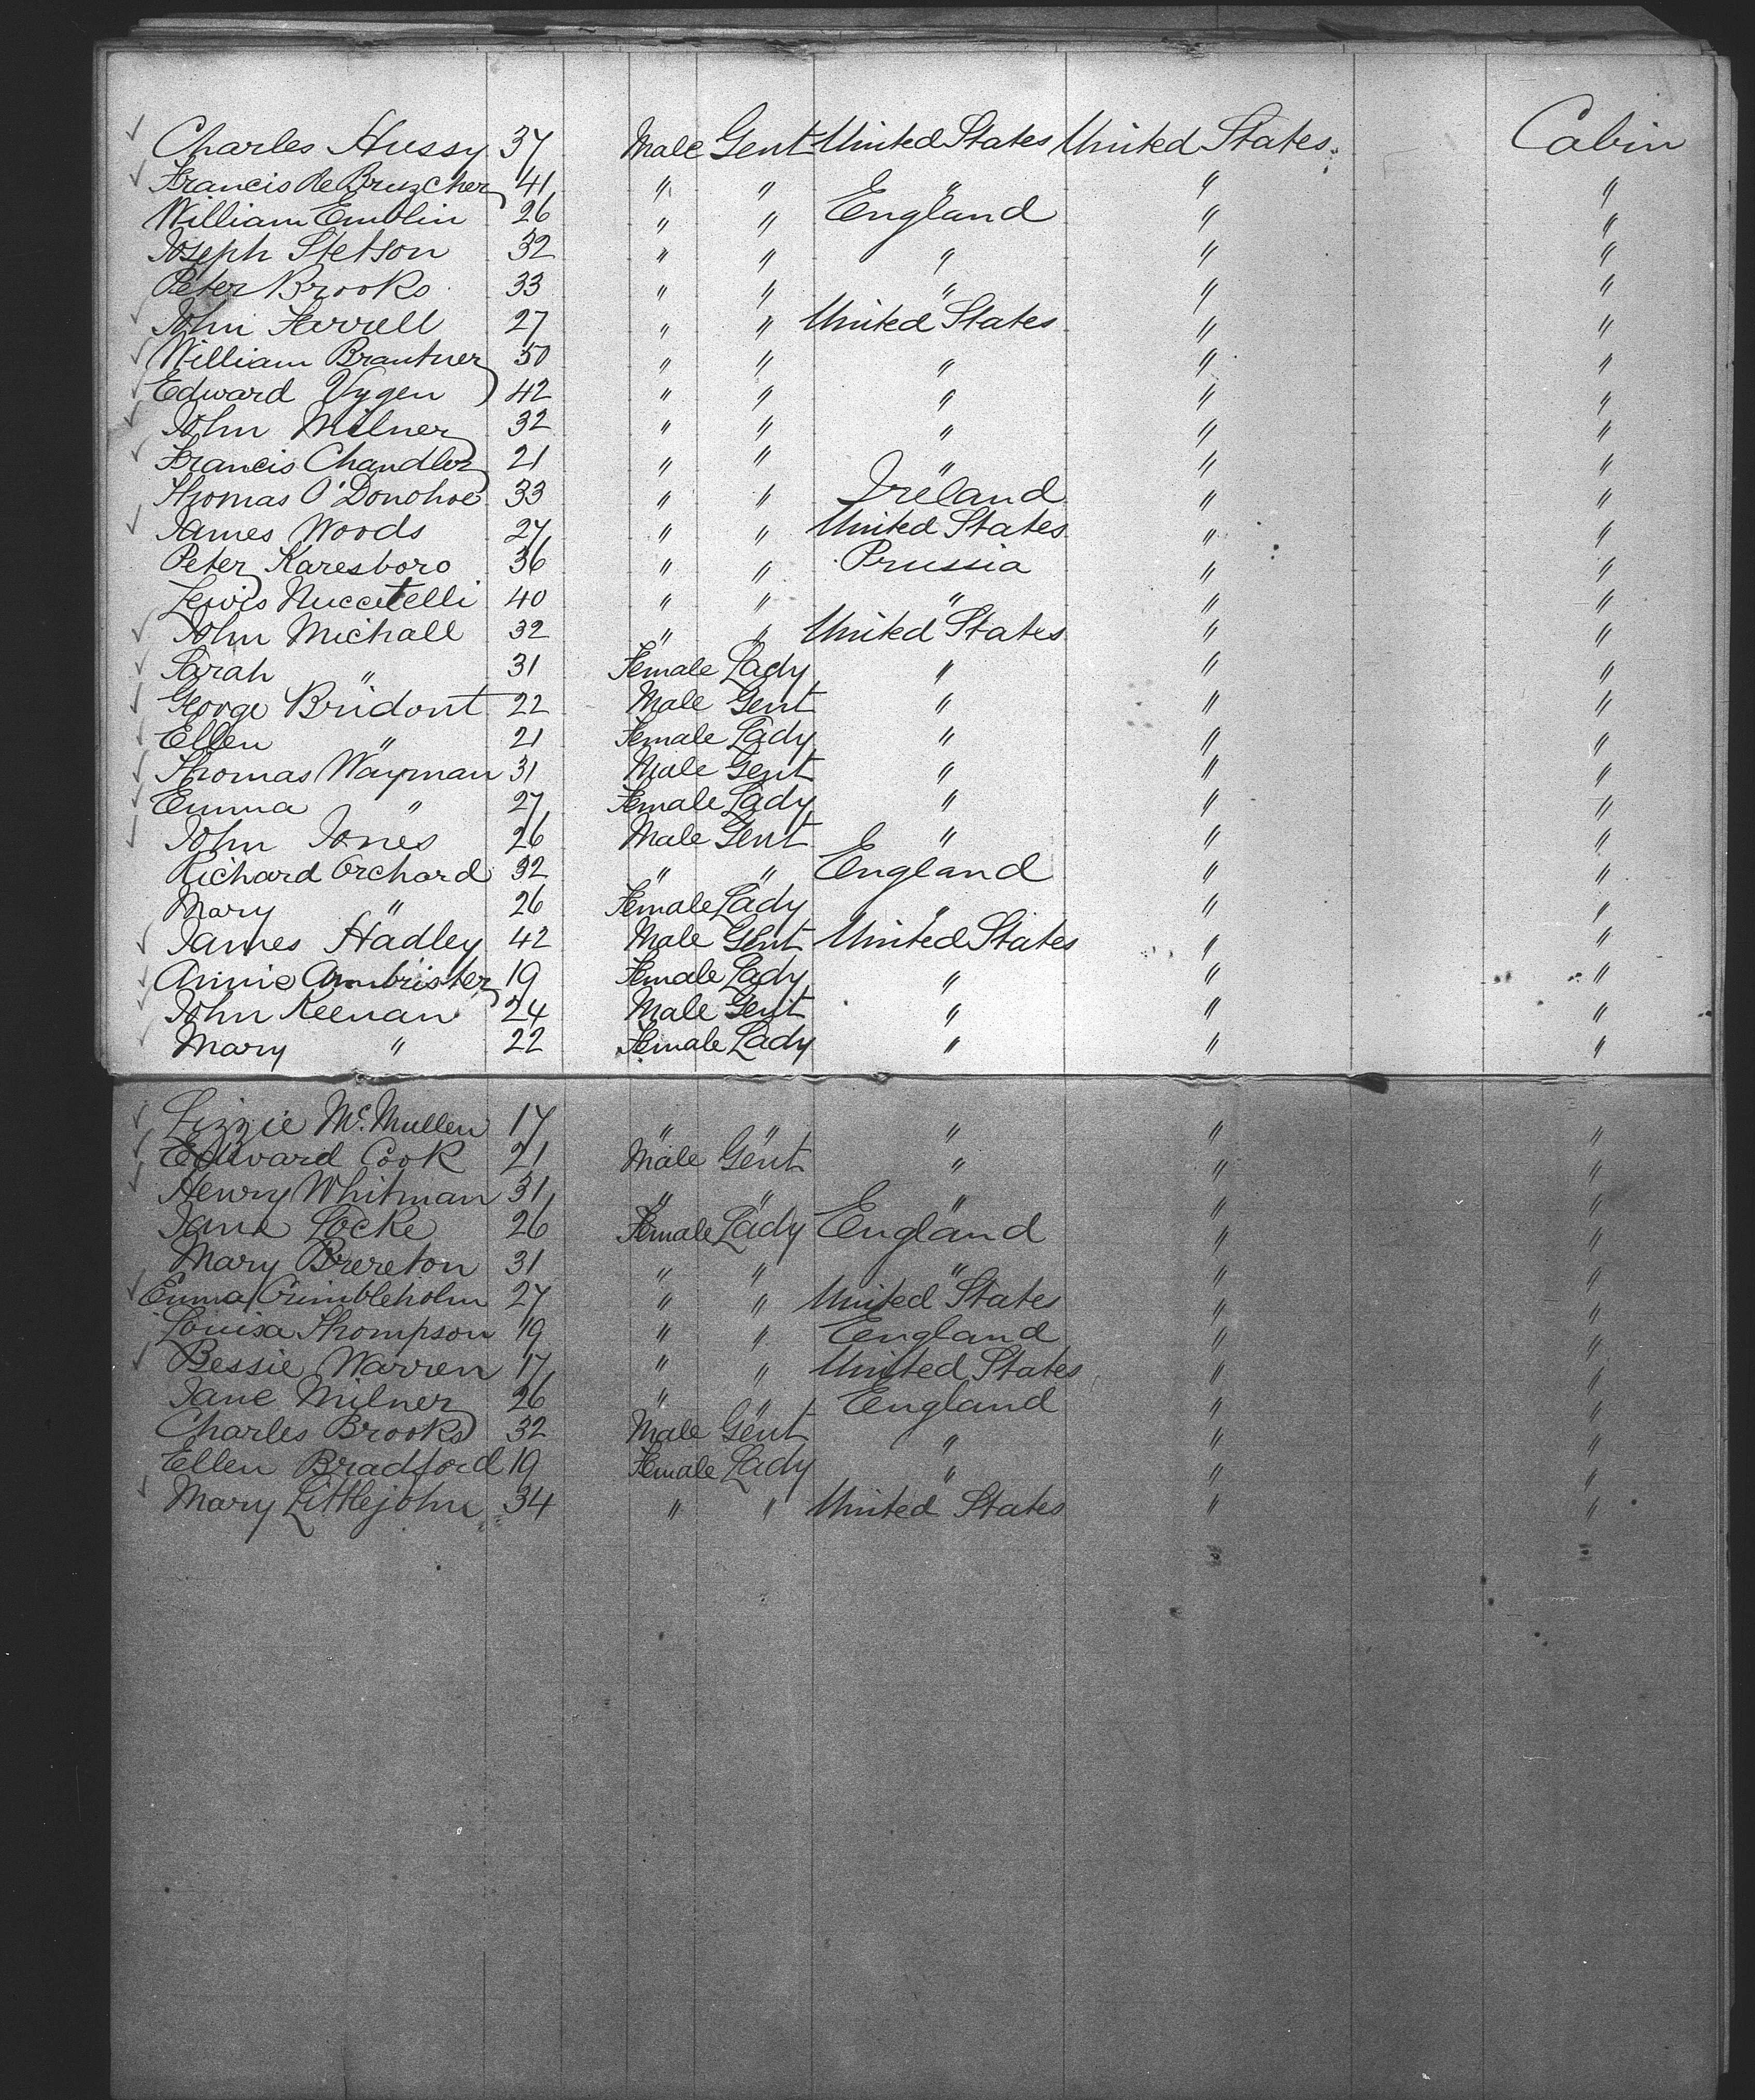 ✓ Charles Hussy 37 Male Gent United States United States. Cabin
✓ Francis De Bruzcher 41 " " " " "
William Emblin 26 " " England " "
Joseph Stetson 32 " " " " "
Peter Brooks 33 " " " " "
✓ John Farrell 27 " " United States " "
✓ William Brantner 50 " " " " "
✓ Edward Vygen 42 " " " " "
✓ John Milner 32 " " " " "
✓ Francis Chandler 21 " " " " "
Thomas O'Donohoe 33 " " Ireland " "
✓ James Woods 27 " " United States " "
Peter Karesboro 36 " " Prussia " "
Lewis Nuccitelli 40 " " " " "
✓ John Michall 32 " " United States " "
✓ Sarah " 31 Female Lady " " "
✓ George Bridont 22 Male Gent " " "
✓ Ellen " 21 Female Lady " " "
✓ Thomas Wayman 31 Male Gent " " "
✓ Emma " 27 Female Lady " " "
✓ John Jones 26 Male Gent " " "
Richard Orchard 32 " " England " "
Mary " 26 Female Lady " " "
✓ James Hadley 42 Male Gent United States " "
✓ Annie Ambrister 19 Female Lady " " "
✓ John Keenan 24 Male Gent " " "
✓ Mary " 22 Female Lady " " "
✓ Lizzie McMullen 17 " " " " "
✓ Edward Cook 21 Male Gent " " "
✓ Henry Whitman 31 " " " " "
Jane Locke 26 Female Lady England " "
Mary Brereton 31 " " " " "
✓ Emma Crimbleholm 27 " " United States " "
Louisa Thompson 19 " " England " "
✓ Bessie Warren 17 " " United States " "
Jane Milner 26 " " England " "
Charles Brooks 32 Male Gent " " "
Ellen Bradford 19 Female Lady " " "
✓ Mary Littlejohn 34 " " United States " "